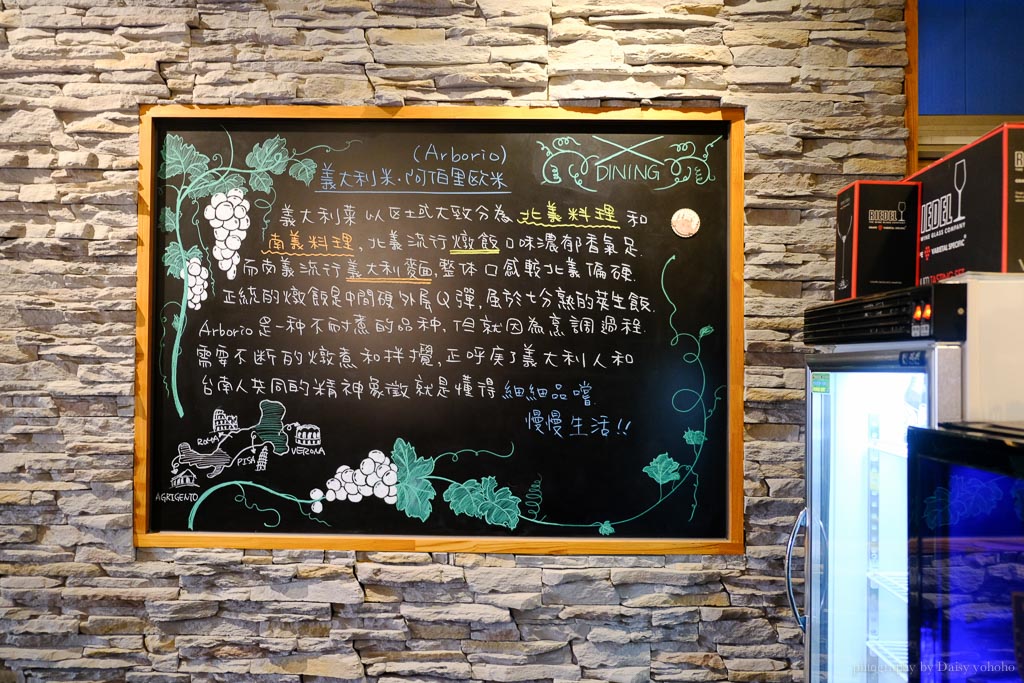 (Arborio)
義大利米·阿伯里歐米
DINING
義大利菜以區域大致分為北義料理和
南義料理,北義流行燉飯口味濃郁香氣足.
而南義流行義大利麵,整体口感較北義偏硬.
正統的燉飯是中間硬外層Q彈,屬於七分熟的夾生飯.
Arborio是一种不耐煮的品种,但就因為烹調過程.
需要不断的燉煮和拌攪,正呼應了義大利人和
台南人共同的精神象徵就是懂得細細品嚐
慢慢生活!!
ROMA
PISA
VERONA
AGRIGENTO
RIEDEL
RIEDEL
WINE GLASS COMPANY
"VARIETAL SPECIFIC"
TASTING SET
photography by Daisy yohoho